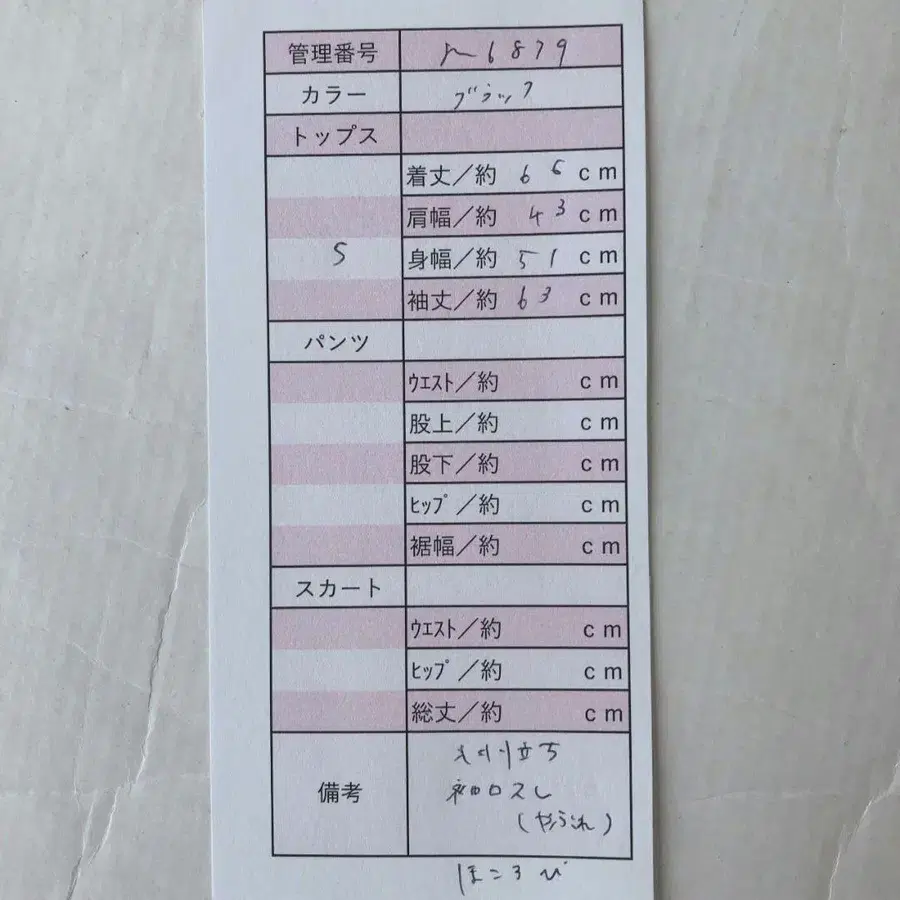 管理番号 m6879
カラー ブラック
トップス
着丈／約 66 cm
肩幅／約 43 cm
S 身幅／約 51 cm
袖丈／約 63 cm
パンツ
ｳｴｽﾄ／約 cm
股上／約 cm
股下／約 cm
ﾋｯﾌﾟ／約 cm
裾幅／約 cm
スカート
ｳｴｽﾄ／約 cm
ﾋｯﾌﾟ／約 cm
総丈／約 cm
立ち
備考 袖口スレ
(やぶれ)
ほころび